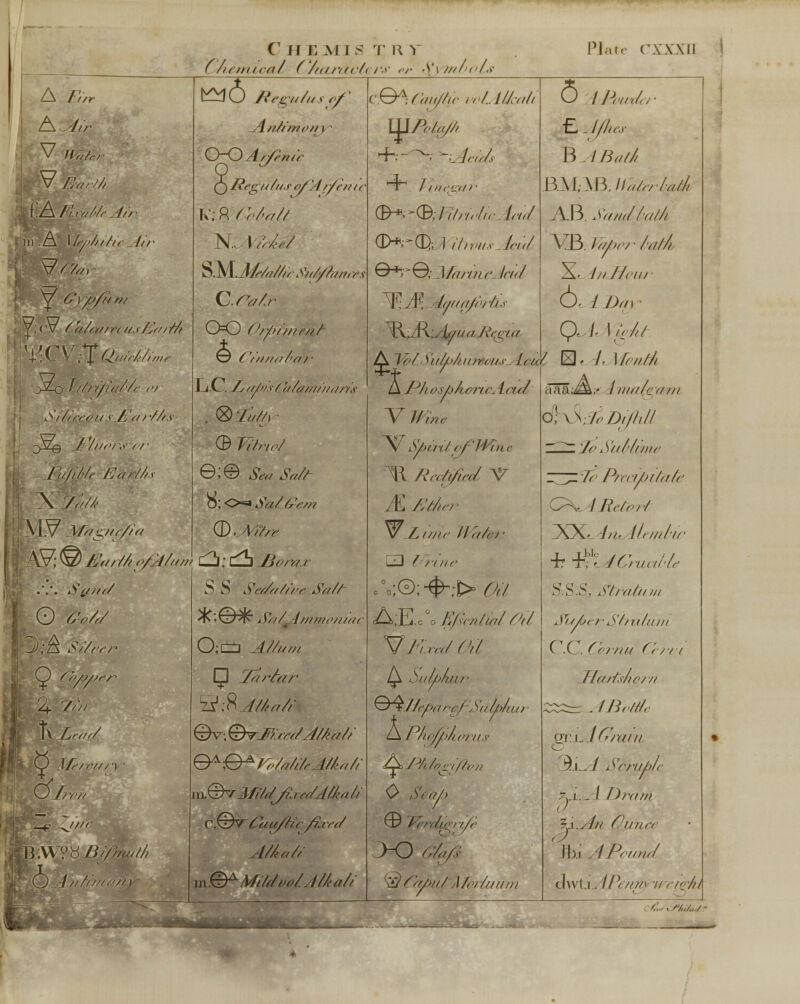 CHEMISTRY
Plate CXXXII
Chemical Characters or Symbols
Fire
Air
Water
Earth
f. Fixable Air
m. Mephitic Air
Clay
Gypsum
C Calcareous Earth
C Quicklime
Vitrifiable or
Siliceous Earths
Fluors or
Fusible Earths
X Talk
M Magnesia
A Earth of Alum
Sand
Gold
Silver
Copper
Tin
Lead
Mercury
Iron
Zinc
B; W; 8 Bismuth
Antimony
Regulus of
Antimony
Arsenic
Regulus of Arsenic
K; Cobalt
N. Nickel
S.M. Metallic Substances
C. Calx
Orpiment
Cinnabar
L.C. Lapis Calaminaris
Tutty
Vitriol
Sea Salt
Sal. Gem
Nitre
Borax
S S Sedative Salt
Sal Ammoniac
Allum
Tartar
Alkali
v; Fixed Alkali
Volatile Alkali
m. Mild fixed Alkali
c. Caustic fixed
Alkali
m. Mild vol. Alkali
c Caustic vol. Alkali
Potash
Acids
Vinegar
Vitriolic Acid
Nitrous Acid
Marine Acid
Aquafortis
Aqua Regia
Vol. Sulphureous Acid
Phosphoric Acid
V Wine
Spirit of Wine
R Rectified V
Æ Ether
Lime Water
Urine
Oil
E. Essential Oil
Fixed Oil
Sulphur
Hepar of Sulphur
Phosphorus
Phlogiston
Soap
Verdigrise
Glass
Caput Mortuum
A Powder
E Ashes
B A Bath
B.M; MB. Water bath
AB. Sand bath
VB. Vapor bath
An Hour
A Day
A Night
A Month
aaa; Amalgam
To Distill
To Sublime
To Precipitate
A Retort
XX. An Alembic
A Crucible
S.S.S, Stratum
Super Stratum
C.C. Cornu Cervi
Hartshorn
A Bottle
gr. i. A Grain
℈.i. A Scruple
ʒ.i. A Dram
℥.i. An Ounce
lb.i A Pound
dwt.i. A Penny weight